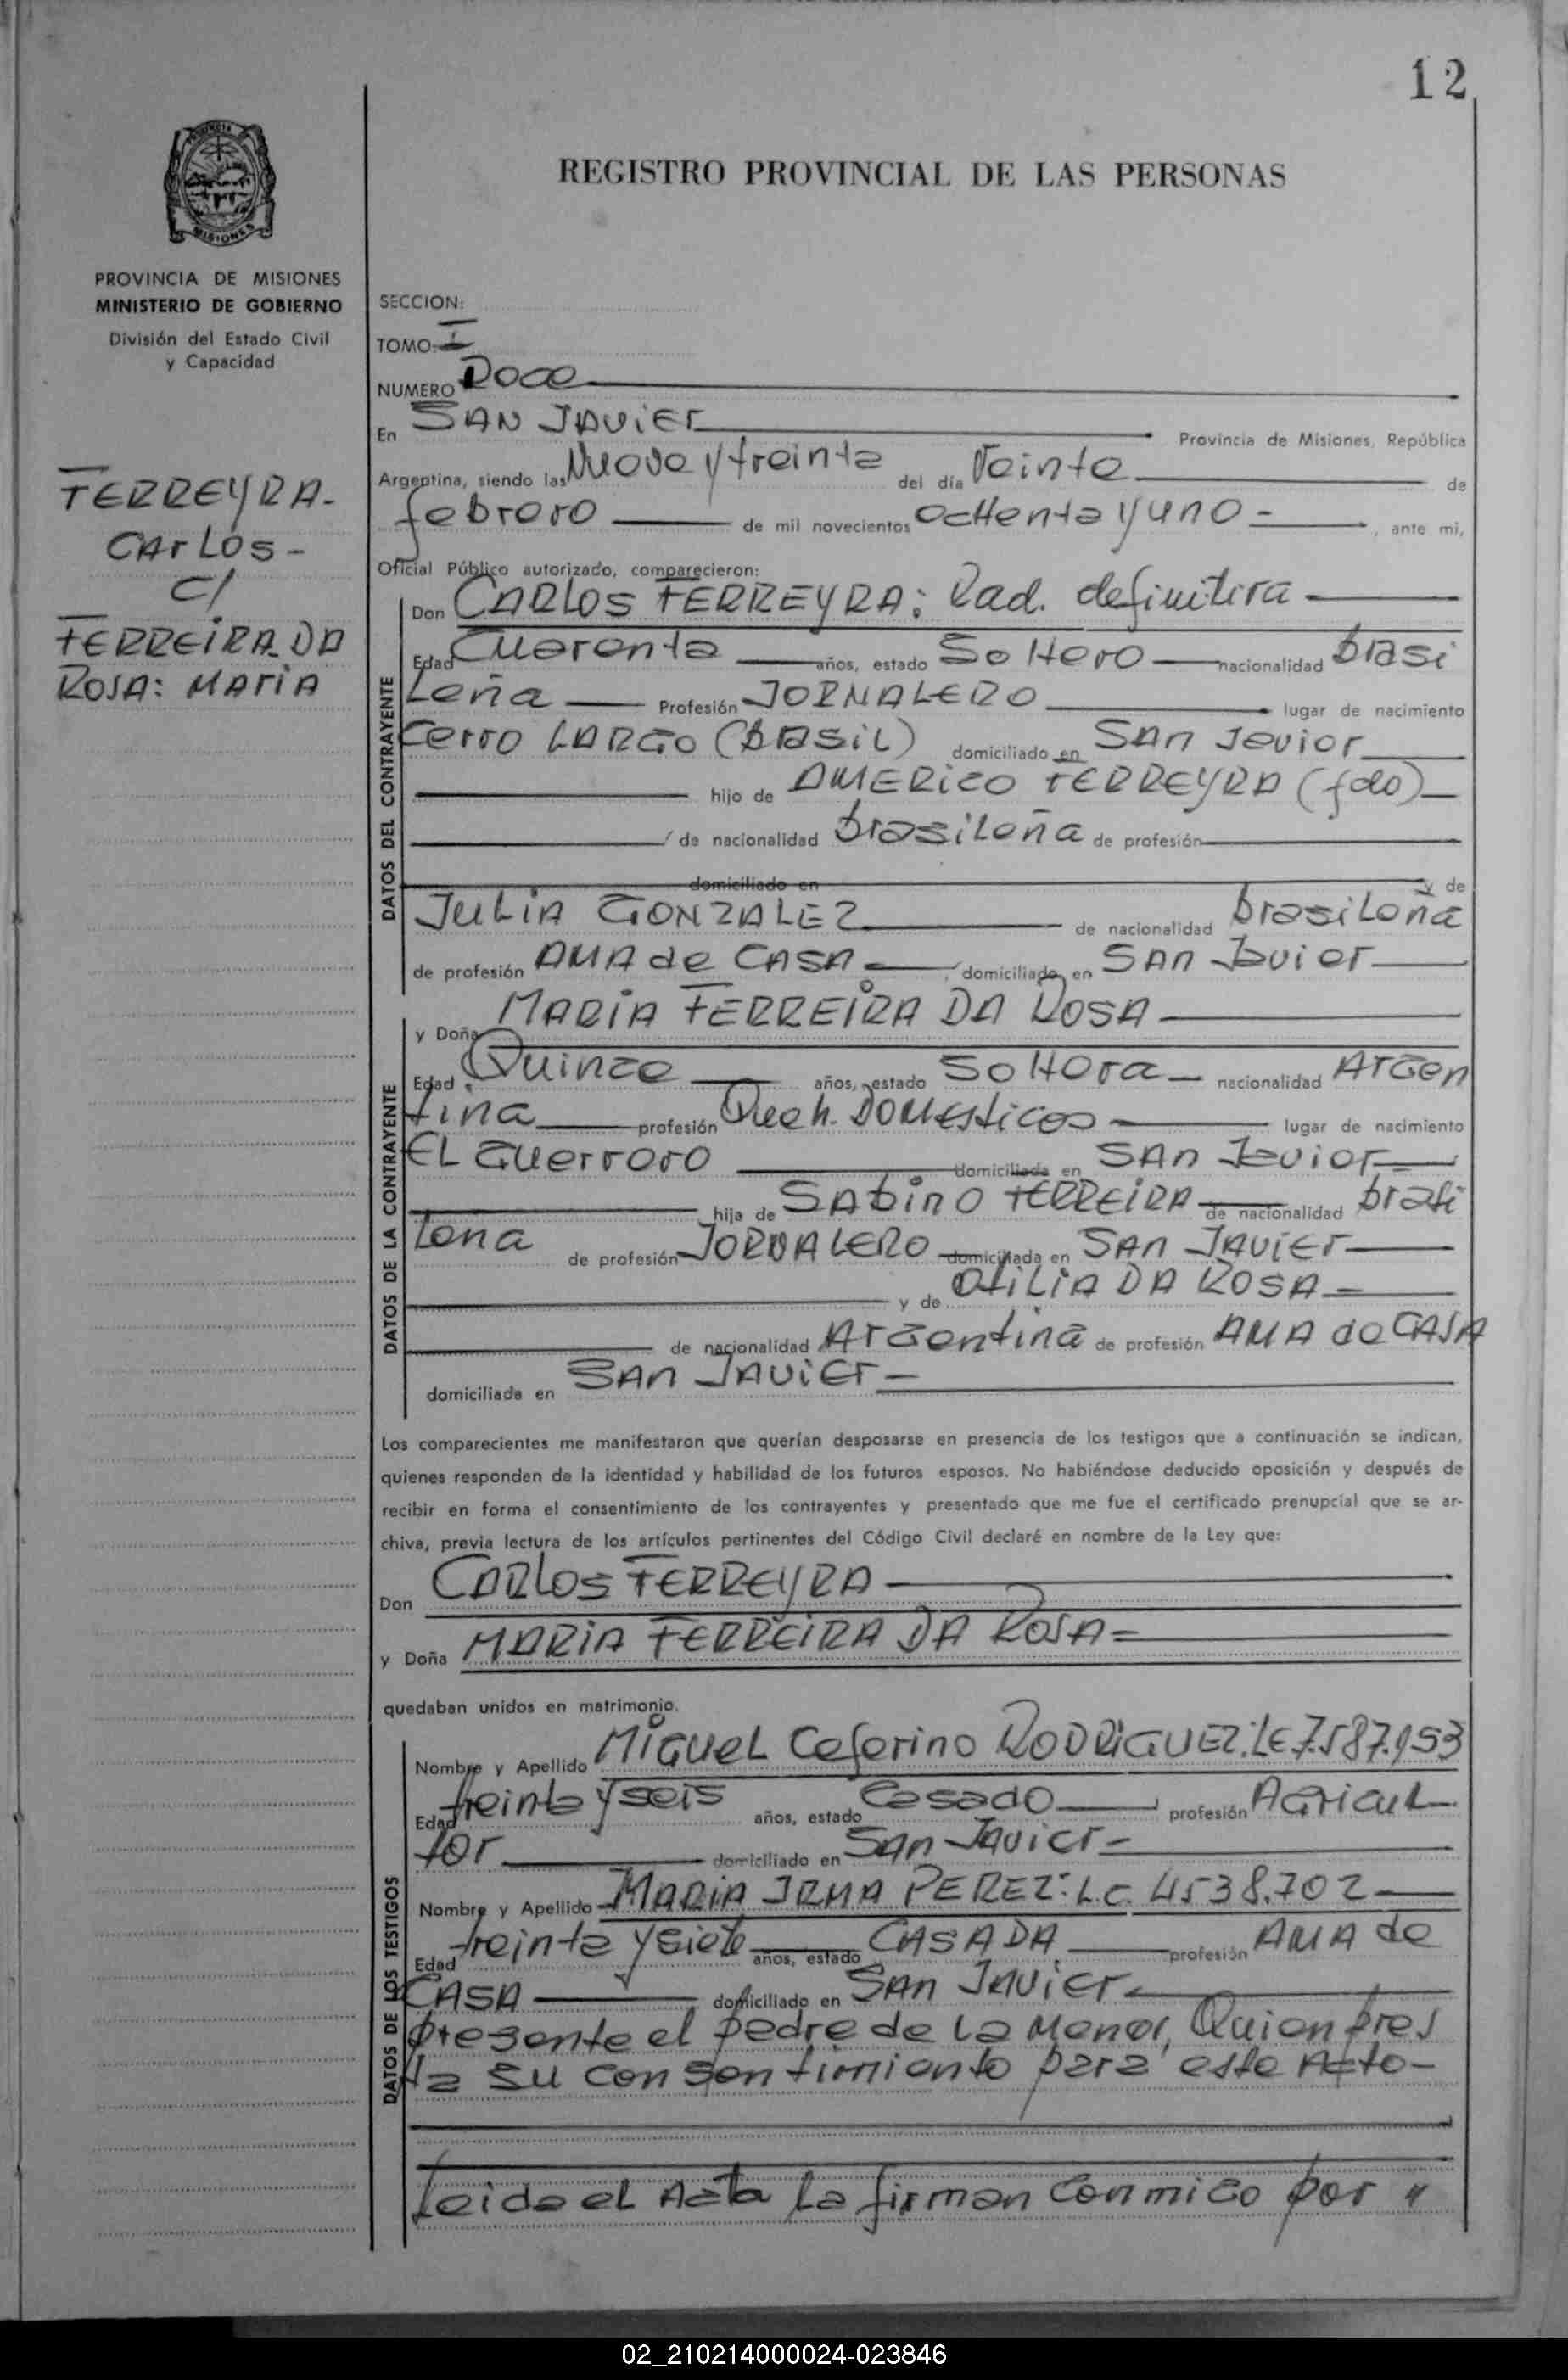 12
REGISTRO PROVINCIAL DE LAS PERSONAS
MISIONES
PROVINCIA DE MISIONES
MINISTERIO DE GOBIERNO
División del Estado Civil
y Capacidad
FERREYRA-
CArLos-
C/
FERREIRA DA
ROSA: MARIA
SECCION:
TOMO: I
NUMERO Doce
En SAN JAVIER Provincia de Misiones, República
Argentina, siendo las Nueve y treinta del día Veinte de
febrero de mil novecientos ocHenta y uno - , ante mi,
Oficial Público autorizado, comparecieron:
DATOS DEL CONTRAYENTE
Don CARLOS FERREYRA: Rad. definitiva
Edad Cuarenta años, estado Soltero nacionalidad brasi
Leña Profesión JORNALERO lugar de nacimiento
Cerro LARGO (brasil) domiciliado en SAn Javier
hijo de AMERICO FERREYRA (fdo)
de nacionalidad brasileña de profesión
domiciliado en y de
JULIA GONZALEZ de nacionalidad brasileña
de profesión AMA de CASA , domiciliada en SAn Javier
DATOS DE LA CONTRAYENTE
y Doña MARIA FERREIRA DA ROSA
Edad Quince años, estado Soltera nacionalidad Argen
tina profesión Queh. DOMESticos lugar de nacimiento
EL Guerrero domiciliada en SAn Javier
hija de SAbino FERREIRA de nacionalidad brasi
Lena de profesión JORNALERO domiciliada en SAn JAVIEr
y de OtiLIA DA ROSA
de nacionalidad Argentina de profesión AMA de CASA
domiciliada en SAn JAVIEr
Los comparecientes me manifestaron que querían desposarse en presencia de los testigos que a continuación se indican,
quienes responden de la identidad y habilidad de los futuros esposos. No habiéndose deducido oposición y después de
recibir en forma el consentimiento de los contrayentes y presentado que me fue el certificado prenupcial que se ar-
chiva, previa lectura de los artículos pertinentes del Código Civil declaré en nombre de la Ley que:
Don CARLOS FERREYRA
y Doña MARIA FERREIRA DA ROSA=
quedaban unidos en matrimonio.
DATOS DE LOS TESTIGOS
Nombre y Apellido MIGUEL Ceferino RODRIGUEZ: LE 7.587.953
Edad treinta y seis años, estado Casado profesión Agricul
tor domiciliado en San Javier
Nombre y Apellido MARIA IRMA PEREZ: L.C. 4538.702
Edad treinta y siete años, estado CASADA profesión AMA de
CASA domiciliado en SAn JAVIEr
presente el padre de La Menor, Quien pres
ta su consentimiento para este Acto-
Leida el Acta La firman Conmigo por "
02_210214000024-023846